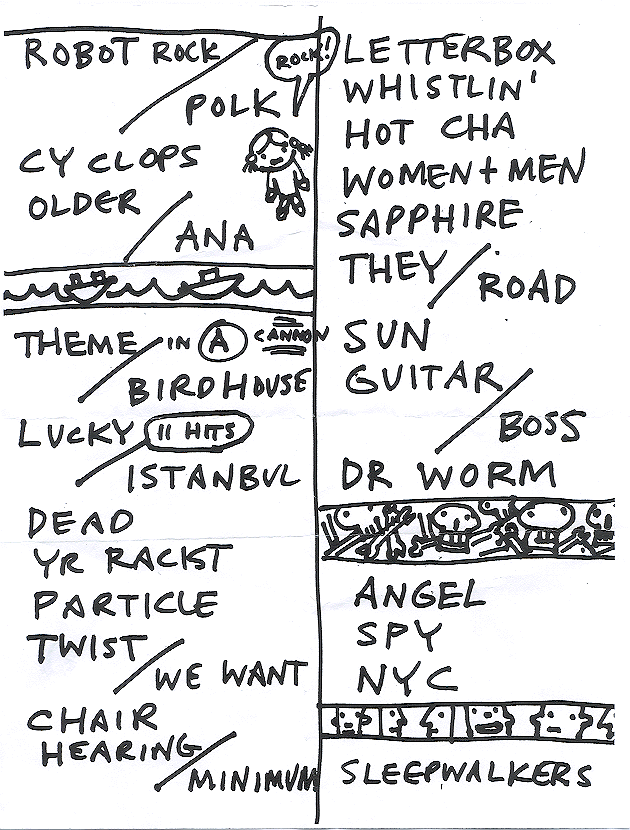 ROBOT ROCK
ROCK!
POLK
CYCLOPS
OLDER
ANA
THEME IN A CANNON
BIRDHOUSE
LUCKY 11 HITS
ISTANBUL
DEAD
YR RACKST
PARTICLE
TWIST
WE WANT
CHAIR
HEARING
MINIMUM
LETTERBOX
WHISTLIN'
HOT CHA
WOMEN + MEN
SAPPHIRE
THEY
ROAD
SUN
GUITAR
BOSS
DR WORM
ANGEL
SPY
NYC
SLEEPWALKERS